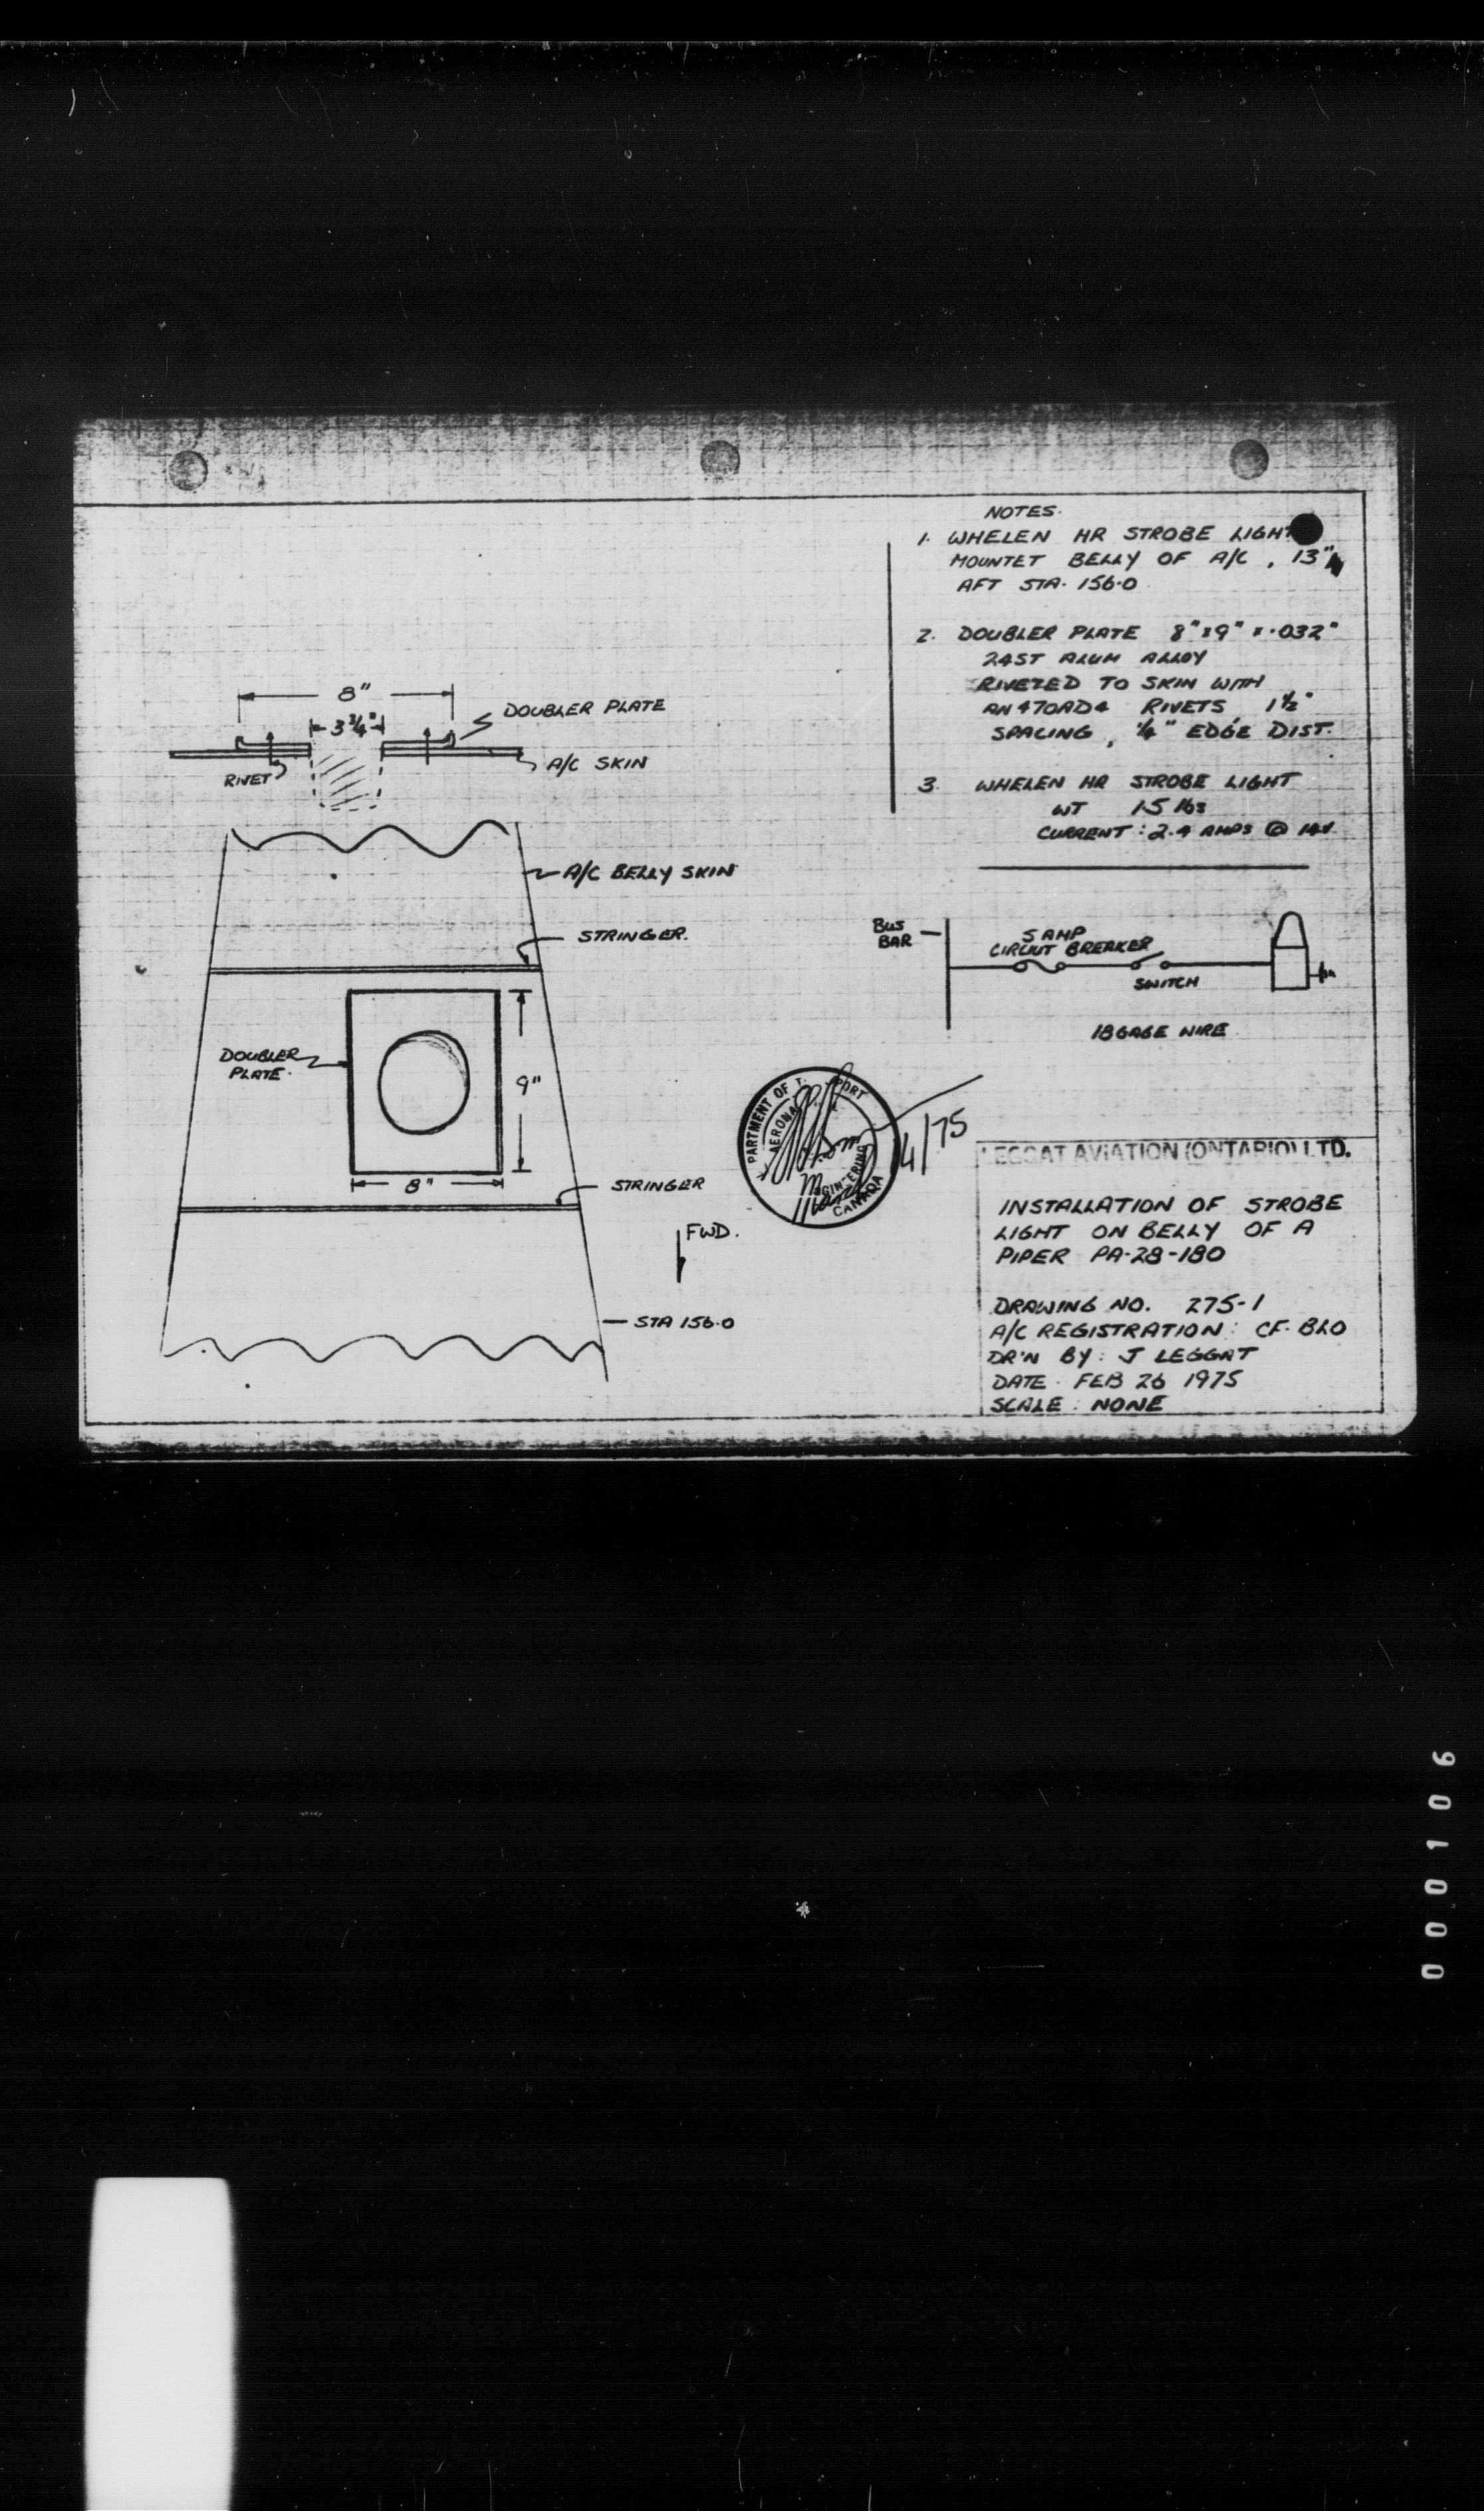 NOTES.
1. WHELEN HR STROBE LIGHT
MOUNTET BELLY OF A/C, 13"
AFT STA. 156.0
2. DOUBLER PLATE 8"x9"x.032"
24ST ALUM ALLOY
RIVETED TO SKIN WITH
AN470AD4 RIVETS 1½"
SPACING, ¼" EDGE DIST.
3. WHELEN HR STROBE LIGHT
WT 1.5 lbs
CURRENT: 2.4 AMPS @ 14V.
8"
3¾"
DOUBLER PLATE
RIVET
A/C SKIN
A/C BELLY SKIN
STRINGER.
DOUBLER
PLATE.
9"
8"
STRINGER
FWD.
STA 156.0
BUS
BAR
5 AMP
CIRCUIT BREAKER
SWITCH
18 GAGE WIRE
PARTMENT OF T PORT
AERONA
GINEERING
CANADA
4/75
LEGGAT AVIATION (ONTARIO) LTD.
INSTALLATION OF STROBE
LIGHT ON BELLY OF A
PIPER PA-28-180
DRAWING NO. 275-1
A/C REGISTRATION: CF-BLO
DR'N BY: J LEGGAT
DATE. FEB 26 1975
SCALE: NONE
000106